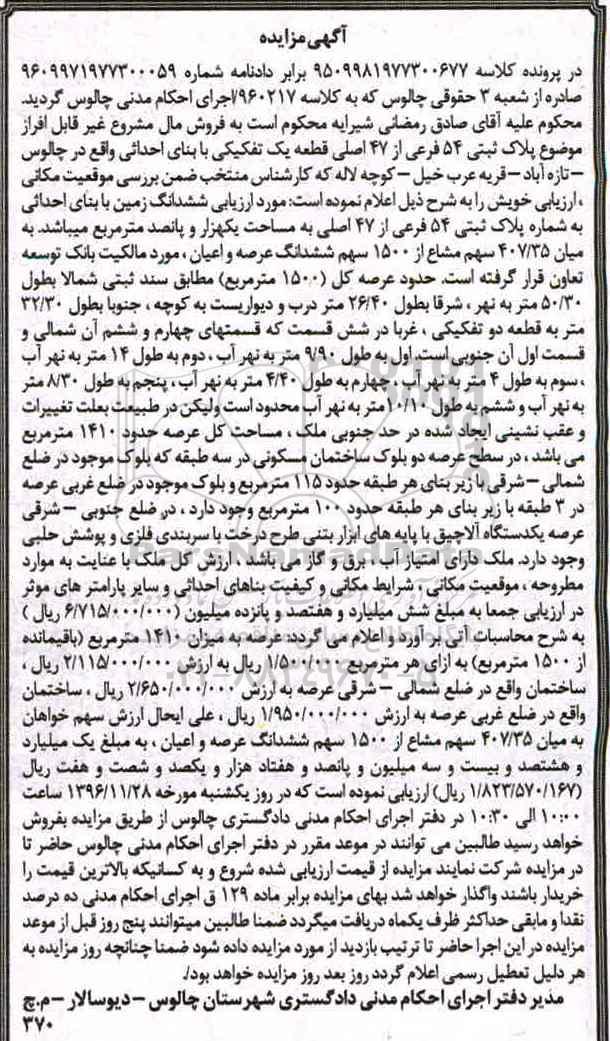 آگهی مزایده
در پرونده کلاسه ۹۵۰۹۹۸۱۹۷۷۳۰۰۶۷۷ برابر دادنامه شماره ۹۶۰۹۹۷۱۹۷۷۳۰۰۰۵۹
صادره از شعبه ۳ حقوقی چالوس که به کلاسه ۹۶۰۲۱۷/اجرای احکام مدنی چالوس گردید.
محکوم علیه آقای صادق رمضانی شیرایه محکوم است به فروش مال مشروع غیر قابل افراز
موضوع پلاک ثبتی ۵۴ فرعی از ۴۷ اصلی قطعه یک تفکیکی با بنای احداثی واقع در چالوس
– تازه آباد – قریه عرب خیل – کوچه لاله که کارشناس منتخب ضمن بررسی موقعیت مکانی
، ارزیابی خویش را به شرح ذیل اعلام نموده است: مورد ارزیابی ششدانگ زمین با بنای احداثی
به شماره پلاک ثبتی ۵۴ فرعی از ۴۷ اصلی به مساحت یکهزار و پانصد مترمربع میباشد. به
میان ۴۰۷/۳۵ سهم مشاع از ۱۵۰۰ سهم ششدانگ عرصه و اعیان ، مورد مالکیت بانک توسعه
تعاون قرار گرفته است. حدود عرصه کل (۱۵۰۰ مترمربع) مطابق سند ثبتی شمالا بطول
۵۰/۳۰ متر به نهر ، شرقا بطول ۲۶/۴۰ متر درب و دیواریست به کوچه ، جنوبا بطول ۳۲/۳۰
متر به قطعه دو تفکیکی ، غربا در شش قسمت که قسمتهای چهارم و ششم آن شمالی و
قسمت اول آن جنوبی است. اول به طول ۹/۹۰ متر به نهر آب ، دوم به طول ۱۴ متر به نهر آب
، سوم به طول ۴ متر به نهر آب ، چهارم به طول ۴/۴۰ متر به نهر آب ، پنجم به طول ۸/۳۰ متر
به نهر آب و ششم به طول ۱۰/۱۰متر به نهر آب محدود است ولیکن در طبیعت بعلت تغییرات
و عقب نشینی ایجاد شده در حد جنوبی ملک ، مساحت کل عرصه حدود ۱۴۱۰ مترمربع
می باشد ، در سطح عرصه دو بلوک ساختمان مسکونی در سه طبقه که بلوک موجود در ضلع
شمالی – شرقی با زیر بنای هر طبقه حدود ۱۱۵ مترمربع و بلوک موجود در ضلع غربی عرصه
در ۳ طبقه با زیر بنای هر طبقه حدود ۱۰۰ مترمربع وجود دارد ، در ضلع جنوبی – شرقی
عرصه یکدستگاه آلاچیق با پایه های ابزار بتنی طرح درخت با سربندی فلزی و پوشش حلبی
وجود دارد. ملک دارای امتیاز آب ، برق و گاز می باشد ، ارزش کل ملک با عنایت به موارد
مطروحه ، موقعیت مکانی ، شرایط مکانی و کیفیت بناهای احداثی و سایر پارامتر های موثر
در ارزیابی جمعا به مبلغ شش میلیارد و هفتصد و پانزده میلیون (۶/۷۱۵/۰۰۰/۰۰۰ ریال )
به شرح محاسبات آتی بر آورد و اعلام می گردد: عرصه به میزان ۱۴۱۰ مترمربع (باقیمانده
از ۱۵۰۰ مترمربع) به ازای هر مترمربع ۱/۵۰۰/۰۰۰ ریال به ارزش ۲/۱۱۵/۰۰۰/۰۰۰ ریال ،
ساختمان واقع در ضلع شمالی – شرقی عرصه به ارزش ۲/۶۵۰/۰۰۰/۰۰۰ ریال ، ساختمان
واقع در ضلع غربی عرصه به ارزش ۱/۹۵۰/۰۰۰/۰۰۰ ریال ، علی ایحال ارزش سهم خواهان
به میان ۴۰۷/۳۵ سهم مشاع از ۱۵۰۰ سهم ششدانگ عرصه و اعیان ، به مبلغ یک میلیارد
و هشتصد و بیست و سه میلیون و پانصد و هفتاد هزار و یکصد و شصت و هفت ریال
(۱/۸۲۳/۵۷۰/۱۶۷ ریال) ارزیابی نموده است که در روز یکشنبه مورخه ۱۳۹۶/۱۱/۲۸ ساعت
۱۰:۰۰ الی ۱۰:۳۰ در دفتر اجرای احکام مدنی دادگستری چالوس از طریق مزایده بفروش
خواهد رسید طالبین می توانند در موعد مقرر در دفتر اجرای احکام مدنی چالوس حاضر تا
در مزایده شرکت نمایند مزایده از قیمت ارزیابی شده شروع و به کسانیکه بالاترین قیمت را
خریدار باشند واگذار خواهد شد بهای مزایده برابر ماده ۱۲۹ ق اجرای احکام مدنی ده درصد
نقدا و مابقی حداکثر ظرف یکماه دریافت میگردد ضمنا طالبین میتوانند پنج روز قبل از موعد
مزایده در این اجرا حاضر تا ترتیب بازدید از مورد مزایده داده شود ضمنا چنانچه روز مزایده به
هر دلیل تعطیل رسمی اعلام گردد روز بعد روز مزایده خواهد بود/.
مدیر دفتر اجرای احکام مدنی دادگستری شهرستان چالوس – دیوسالار – م.چ
۳۷۰
ParsNamadData